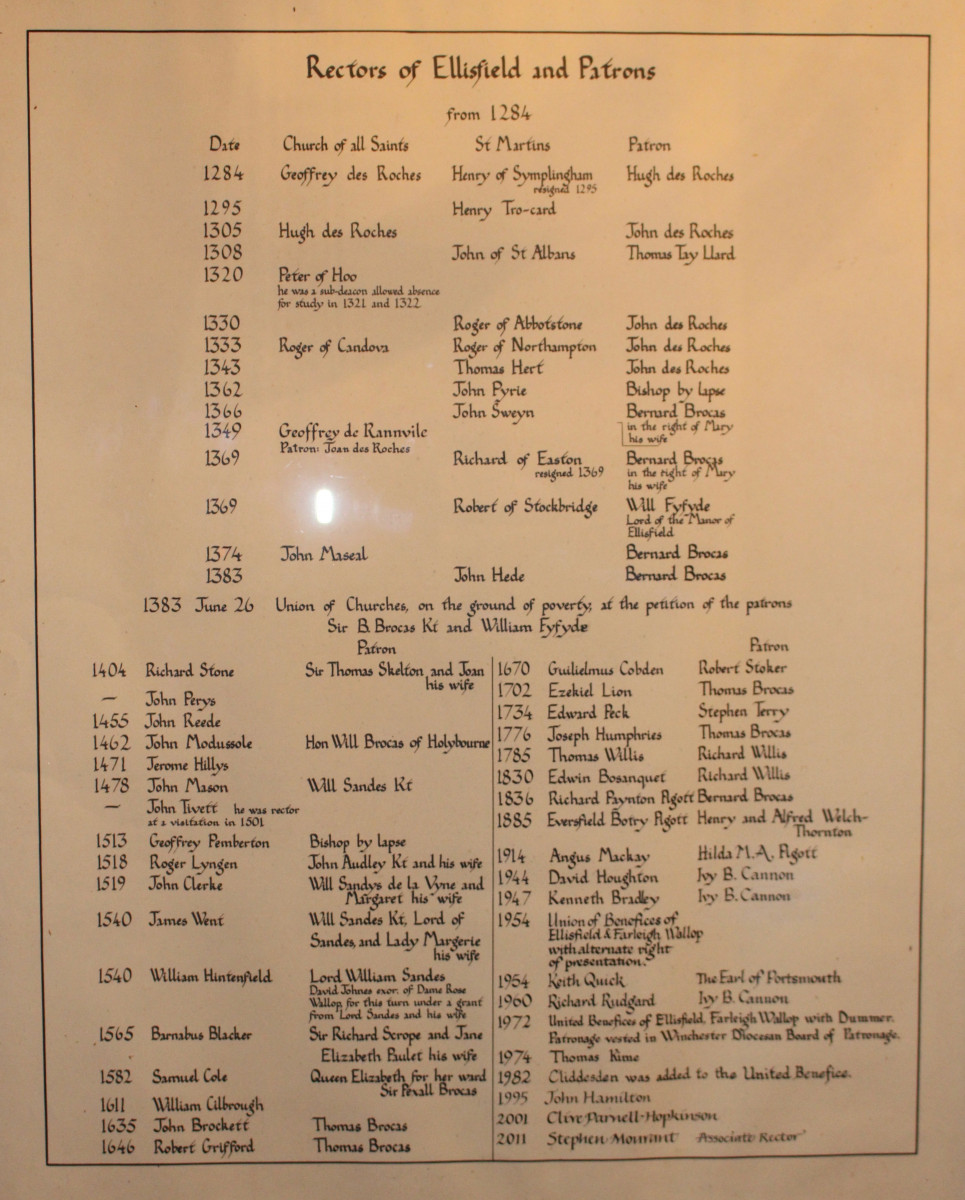 Rectors of Ellisfield and Patrons
from 1284
Date Church of all Saints St Martins Patron
1284 Geoffrey des Roches Henry of Symplingham Hugh des Roches
resigned 1295
1295 Henry Tro-card
1305 Hugh des Roches John des Roches
1308 John of St Albans Thomas Tay Llard
1320 Peter of Hoo
he was a sub-deacon allowed absence
for study in 1321 and 1322
1330 Roger of Abbotstone John des Roches
1333 Roger of Candova Roger of Northampton John des Roches
1343 Thomas Hert John des Roches
1362 John Pyrie Bishop by lapse
1366 John Sweyn Bernard Brocas
1349 Geoffrey de Rannvile in the right of Mary
his wife
Patron: Joan des Roches
1369 Richard of Easton Bernard Brocas
resigned 1369 in the right of Mary
his wife
1369 Robert of Stockbridge Will Fyfyde
Lord of the Manor of
Ellisfield
1374 John Maseal Bernard Brocas
1383 John Hede Bernard Brocas
1383 June 26 Union of Churches, on the ground of poverty, at the petition of the patrons
Sir B. Brocas Kt and William Fyfyde
Patron
1404 Richard Stone Sir Thomas Skelton and Joan
his wife
— John Perys
1455 John Reede
1462 John Modussole Hon Will Brocas of Holybourne
1471 Jerome Hillys
1478 John Mason Will Sandes Kt
— John Tivett he was rector
at a visitation in 1501
1513 Geoffry Pemberton Bishop by lapse
1518 Roger Lyngen John Audley Kt and his wife
1519 John Clerke Will Sandys de la Vyne and
Margaret his wife
1540 James Went Will Sandes Kt, Lord of
Sandes, and Lady Margerie
his wife
1540 William Hintenfield Lord William Sandes
David Johnes exor. of Dame Rose
Wallop for this turn under a grant
from Lord Sandes and his wife
1565 Barnabus Blacker Sir Richard Scrope and Jane
Elizabeth Paulet his wife
1582 Samuel Cole Queen Elizabeth for her ward
Sir Pexall Brocas
1611 William Cilbrough
1635 John Brockett Thomas Brocas
1646 Robert Grifford Thomas Brocas
Patron
1670 Guilielmus Cobden Robert Stoker
1702 Ezekiel Lion Thomas Brocas
1734 Edward Peck Stephen Terry
1776 Joseph Humphries Thomas Brocas
1785 Thomas Willis Richard Willis
1830 Edwin Bosanquet Richard Willis
1836 Richard Paynton Pigott Bernard Brocas
1885 Eversfield Botry Pigott Henry and Alfred Welch-
Thornton
1914 Angus Mackay Hilda M.A. Pigott
1944 David Houghton Ivy B. Cannon
1947 Kenneth Bradley Ivy B. Cannon
1954 Union of Benefices of
Ellisfield & Farleigh Wallop
with alternate right
of presentation.
1954 Keith Quick The Earl of Portsmouth
1960 Richard Rudgard Ivy B. Cannon
1972 United Benefices of Ellisfield, Farleigh Wallop with Dummer.
Patronage vested in Winchester Diocesan Board of Patronage.
1974 Thomas Kime
1982 Cliddesden was added to the United Benefice.
1995 John Hamilton
2001 Clive Parnell-Hopkinson
2011 Stephen Mourant Associate Rector